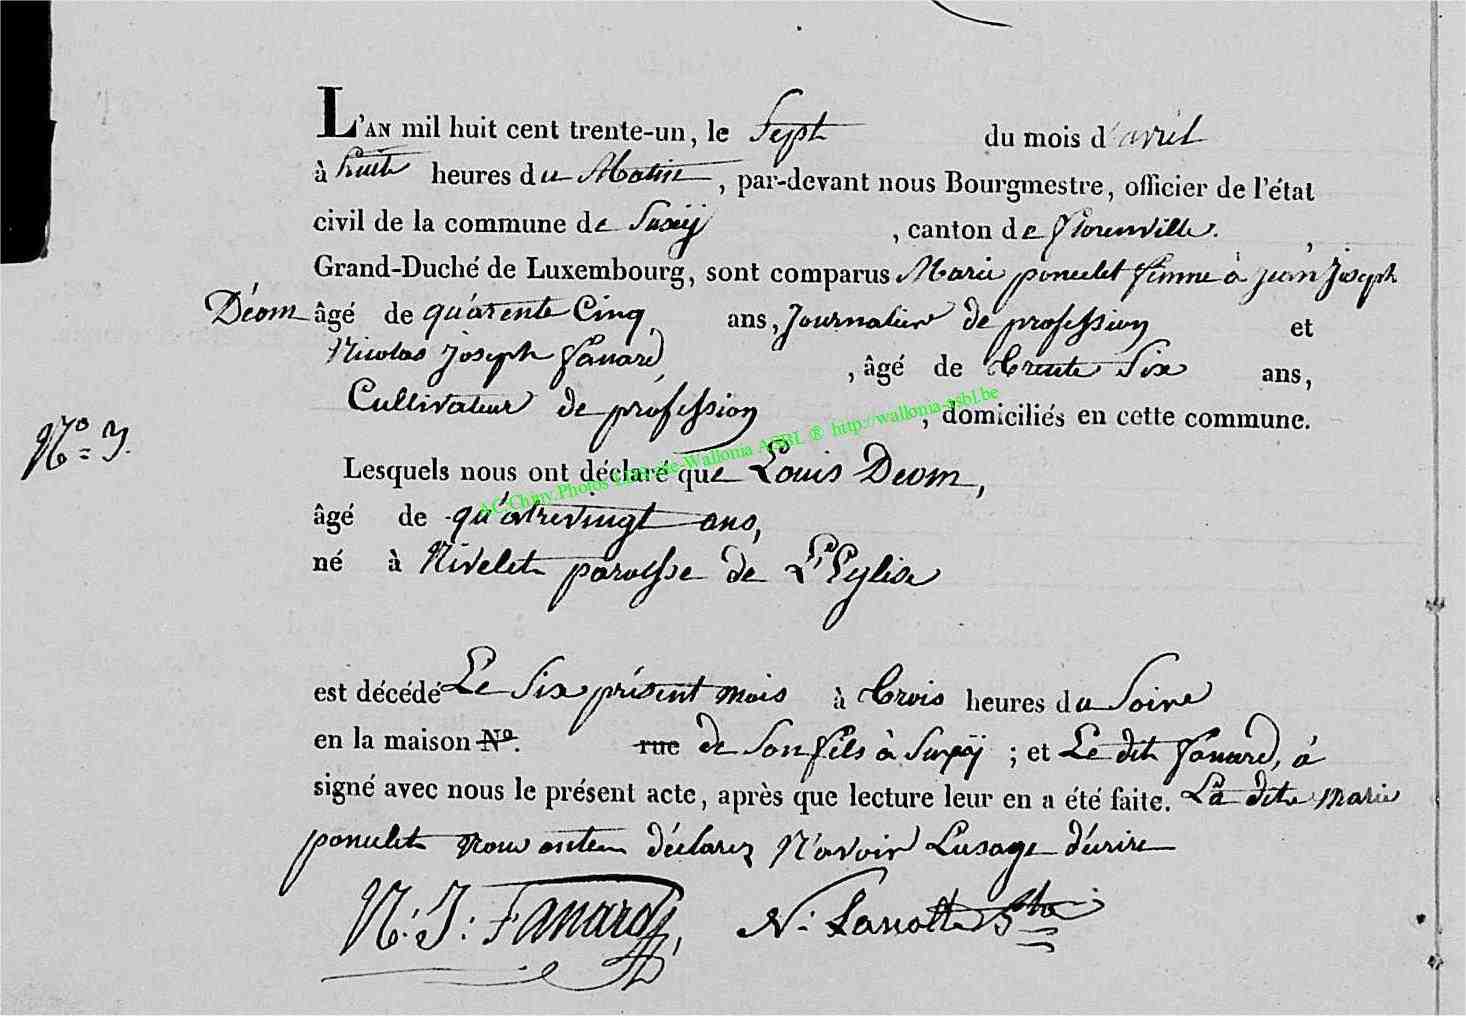 L'AN mil huit cent trente-un, le Sept du mois d'avril
à huit heures du Matin, par-devant nous Bourgmestre, officier de l'état
civil de la commune de Suxÿ, canton de florenville.
Grand-Duché de Luxembourg, sont comparus Marie poncelet femme à jean joseph
Déom âgé de quarente Cinq, ans, Journalier de profession et
Nicolas joseph fanard, âgé de trente Six ans,
Cultivateur de profession, domiciliés en cette commune.
N° 3.
Lesquels nous ont déclaré que Louis Deom,
AC.Chiny.Photos Wallonia ASBL ® http://wallonia-asbl.be
âgé de quatrevingt ans,
né à Nivelet paroisse de L'Eglise
est décédé Le Six présent mois à trois heures du Soire
en la maison N°. rue de Son fils à Suxÿ ; et Le dit fanard, à
signé avec nous le présent acte, après que lecture leur en a été faite. La dite marie
poncelet déclarez N'avoir L'usage d'écrire
N: J: Fanard, N: